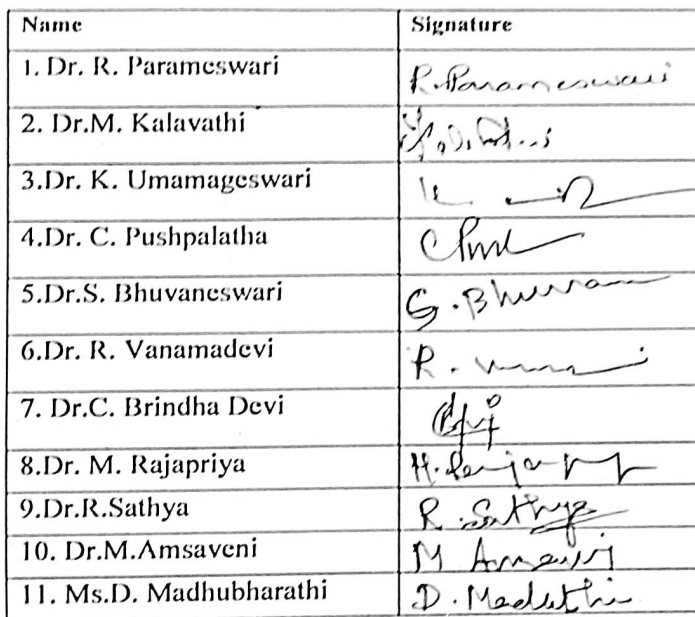 Name Signature
1. Dr. R. Parameswari R. Parameswari
2. Dr.M. Kalavathi
3.Dr. K. Umamageswari
4.Dr. C. Pushpalatha
5.Dr.S. Bhuvaneswari S. Bhuvan
6.Dr. R. Vanamadevi R.
7. Dr.C. Brindha Devi
8.Dr. M. Rajapriya
9.Dr.R.Sathya R. Sathya
10. Dr.M.Amsaveni M
11. Ms.D. Madhubharathi D.